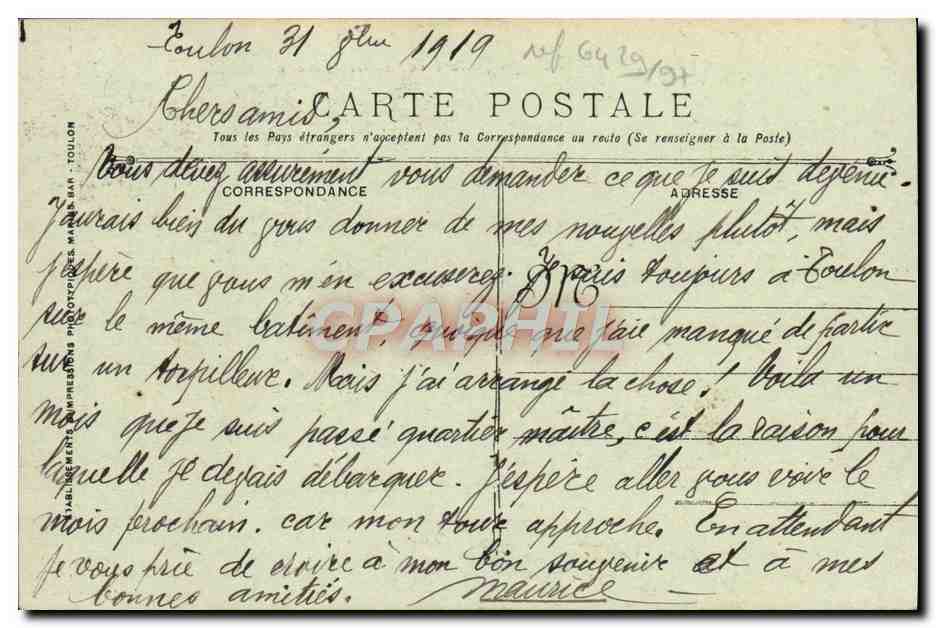 Toulon 31 1919
ref 6429/97
Chers amis,
CARTE POSTALE
Tous les Pays étrangers n'acceptent pas la Correspondance au recto (Se renseigner à la Poste)
Vous devez assurément vous demander ce que je suis devenu.
CORRESPONDANCE
ADRESSE
J'aurais bien du vous donner de mes nouvelles plutôt, mais
j'espère que vous m'en excuserez. Je suis toujours à Toulon
sur le même batiment, quoique que j'aie manqué de partir
CPAPHIL
sur un torpilleur. Mais j'ai arrangé la chose! Voila un
mois que je suis passé quartier maître, c'est la raison pour
laquelle je devais débarquer. J'espère aller vous voir le
mois prochain. car mon tour approche. En attendant
je vous prie de croire à mon bon souvenir et à mes
bonnes amitiés. Maurice
ETABLISSEMENTS D'IMPRESSIONS PHOTOTYPIQUES MARIUS BAR - TOULON